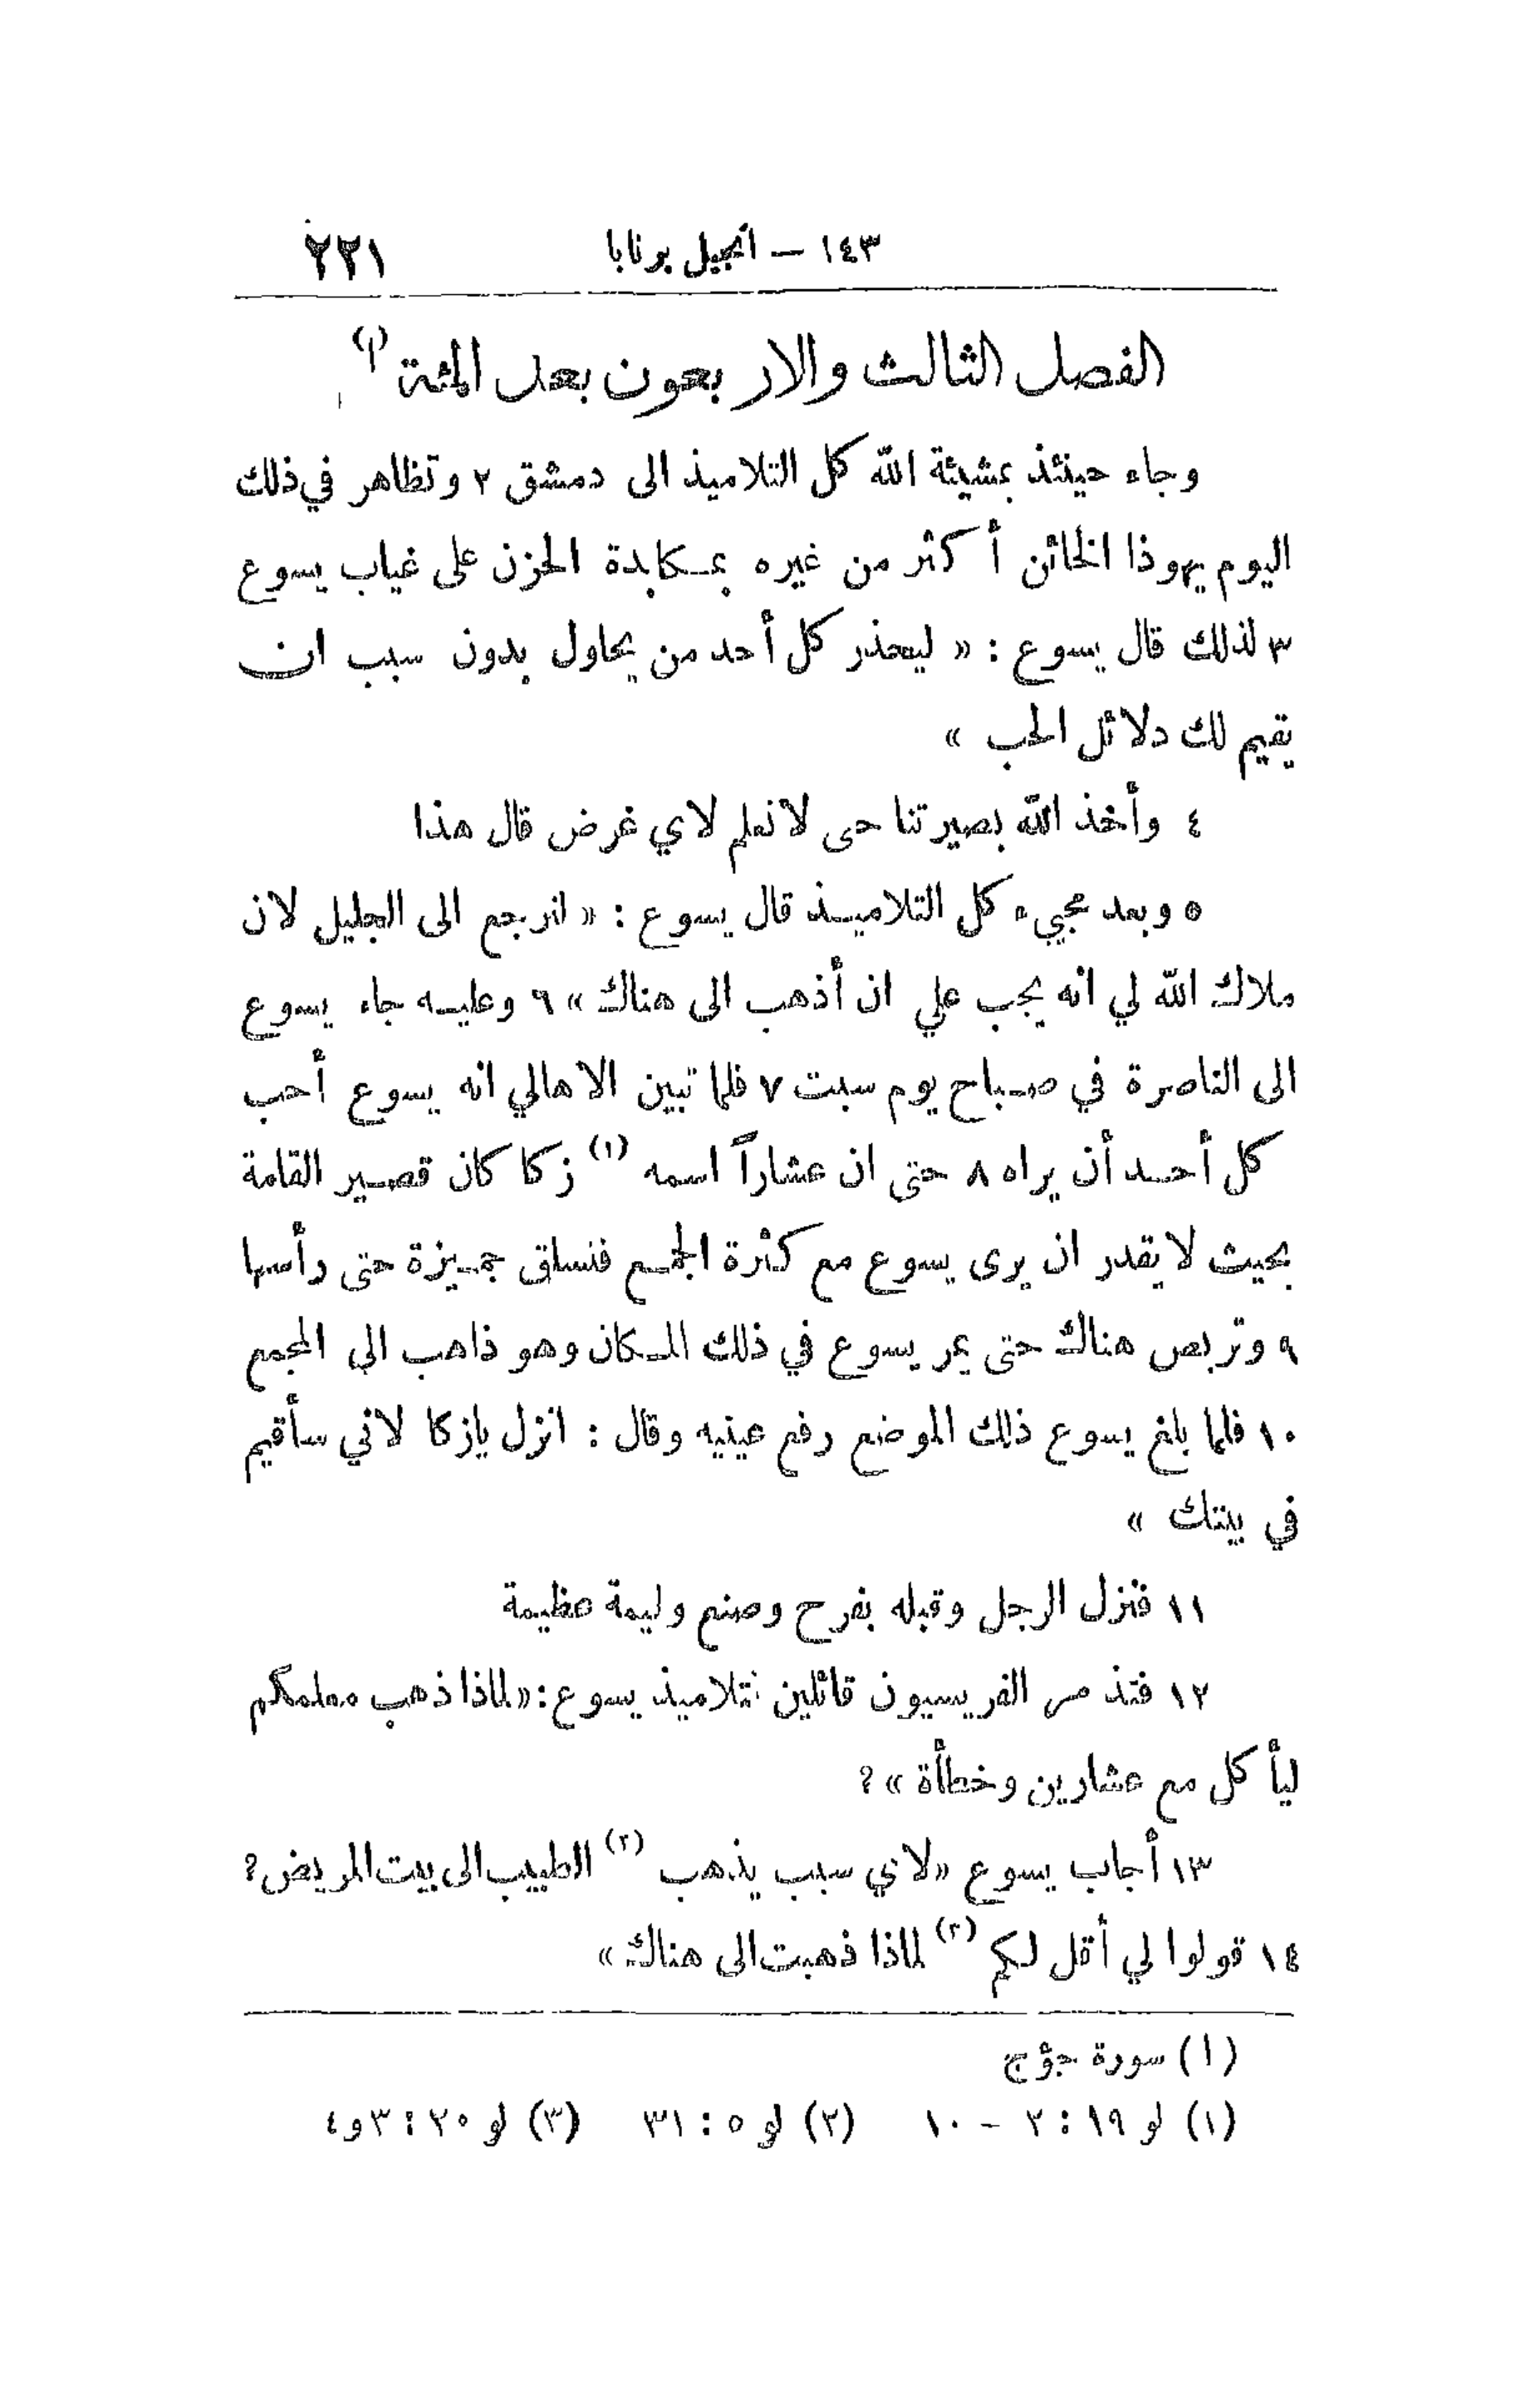 ١٤٣ – انجيل برنابا ٢٢١
الفصل الثالث والاربعون بعد المئة (ا)
وجاء حينئذ بمشيئة الله كل التلاميذ الى دمشق ٢ وتظاهر في ذلك
اليوم يهوذا الخائن أكثر من غيره بمكابدة الحزن على غياب يسوع
٣ لذلك قال يسوع : « ليحذر كل أحد من يحاول بدون سبب ان
يقيم لك دلائل الحب »
٤ وأخذ الله بصيرتنا حتى لانعلم لاي غرض قال هذا
٥ وبعد مجيء كل التلاميذ قال يسوع : « لنرجع الى الجليل لان
ملاك الله لي انه يجب علي ان أذهب الى هناك » ٦ وعليه جاء يسوع
الى الناصرة في صباح يوم سبت ٧ فلما تبين الاهالي انه يسوع أحب
كل أحد أن يراه ٨ حتى ان عشاراً اسمه (١) زكا كان قصير القامة
بحيث لا يقدر ان يرى يسوع مع كثرة الجمع فتسلق جميزة حتى رأسها
٩ وتربص هناك حتى يمر يسوع في ذلك المكان وهو ذاهب الى المجمع
١٠ فلما بلغ يسوع ذلك الموضع رفع عينيه وقال : انزل يازكا لاني سأقيم
في بيتك »
١١ فنزل الرجل وقبله بفرح وصنع وليمة عظيمة
١٢ فتذمر الفريسيون قائلين لتلاميذ يسوع: «لماذا ذهب معلمكم
ليأكل مع عشارين وخطأة » ؟
١٣ أجاب يسوع «لاي سبب يذهب (٢) الطبيب الى بيت المريض ؟
١٤ قولوا لي أقل لكم (٣) لماذا ذهبت الى هناك »
(ا) سورة جؤج
(١) لو ١٩ : ٢ – ١٠ (٢) لو ٥ : ٣١ (٣) لو ٢٠ : ٣ و ٤